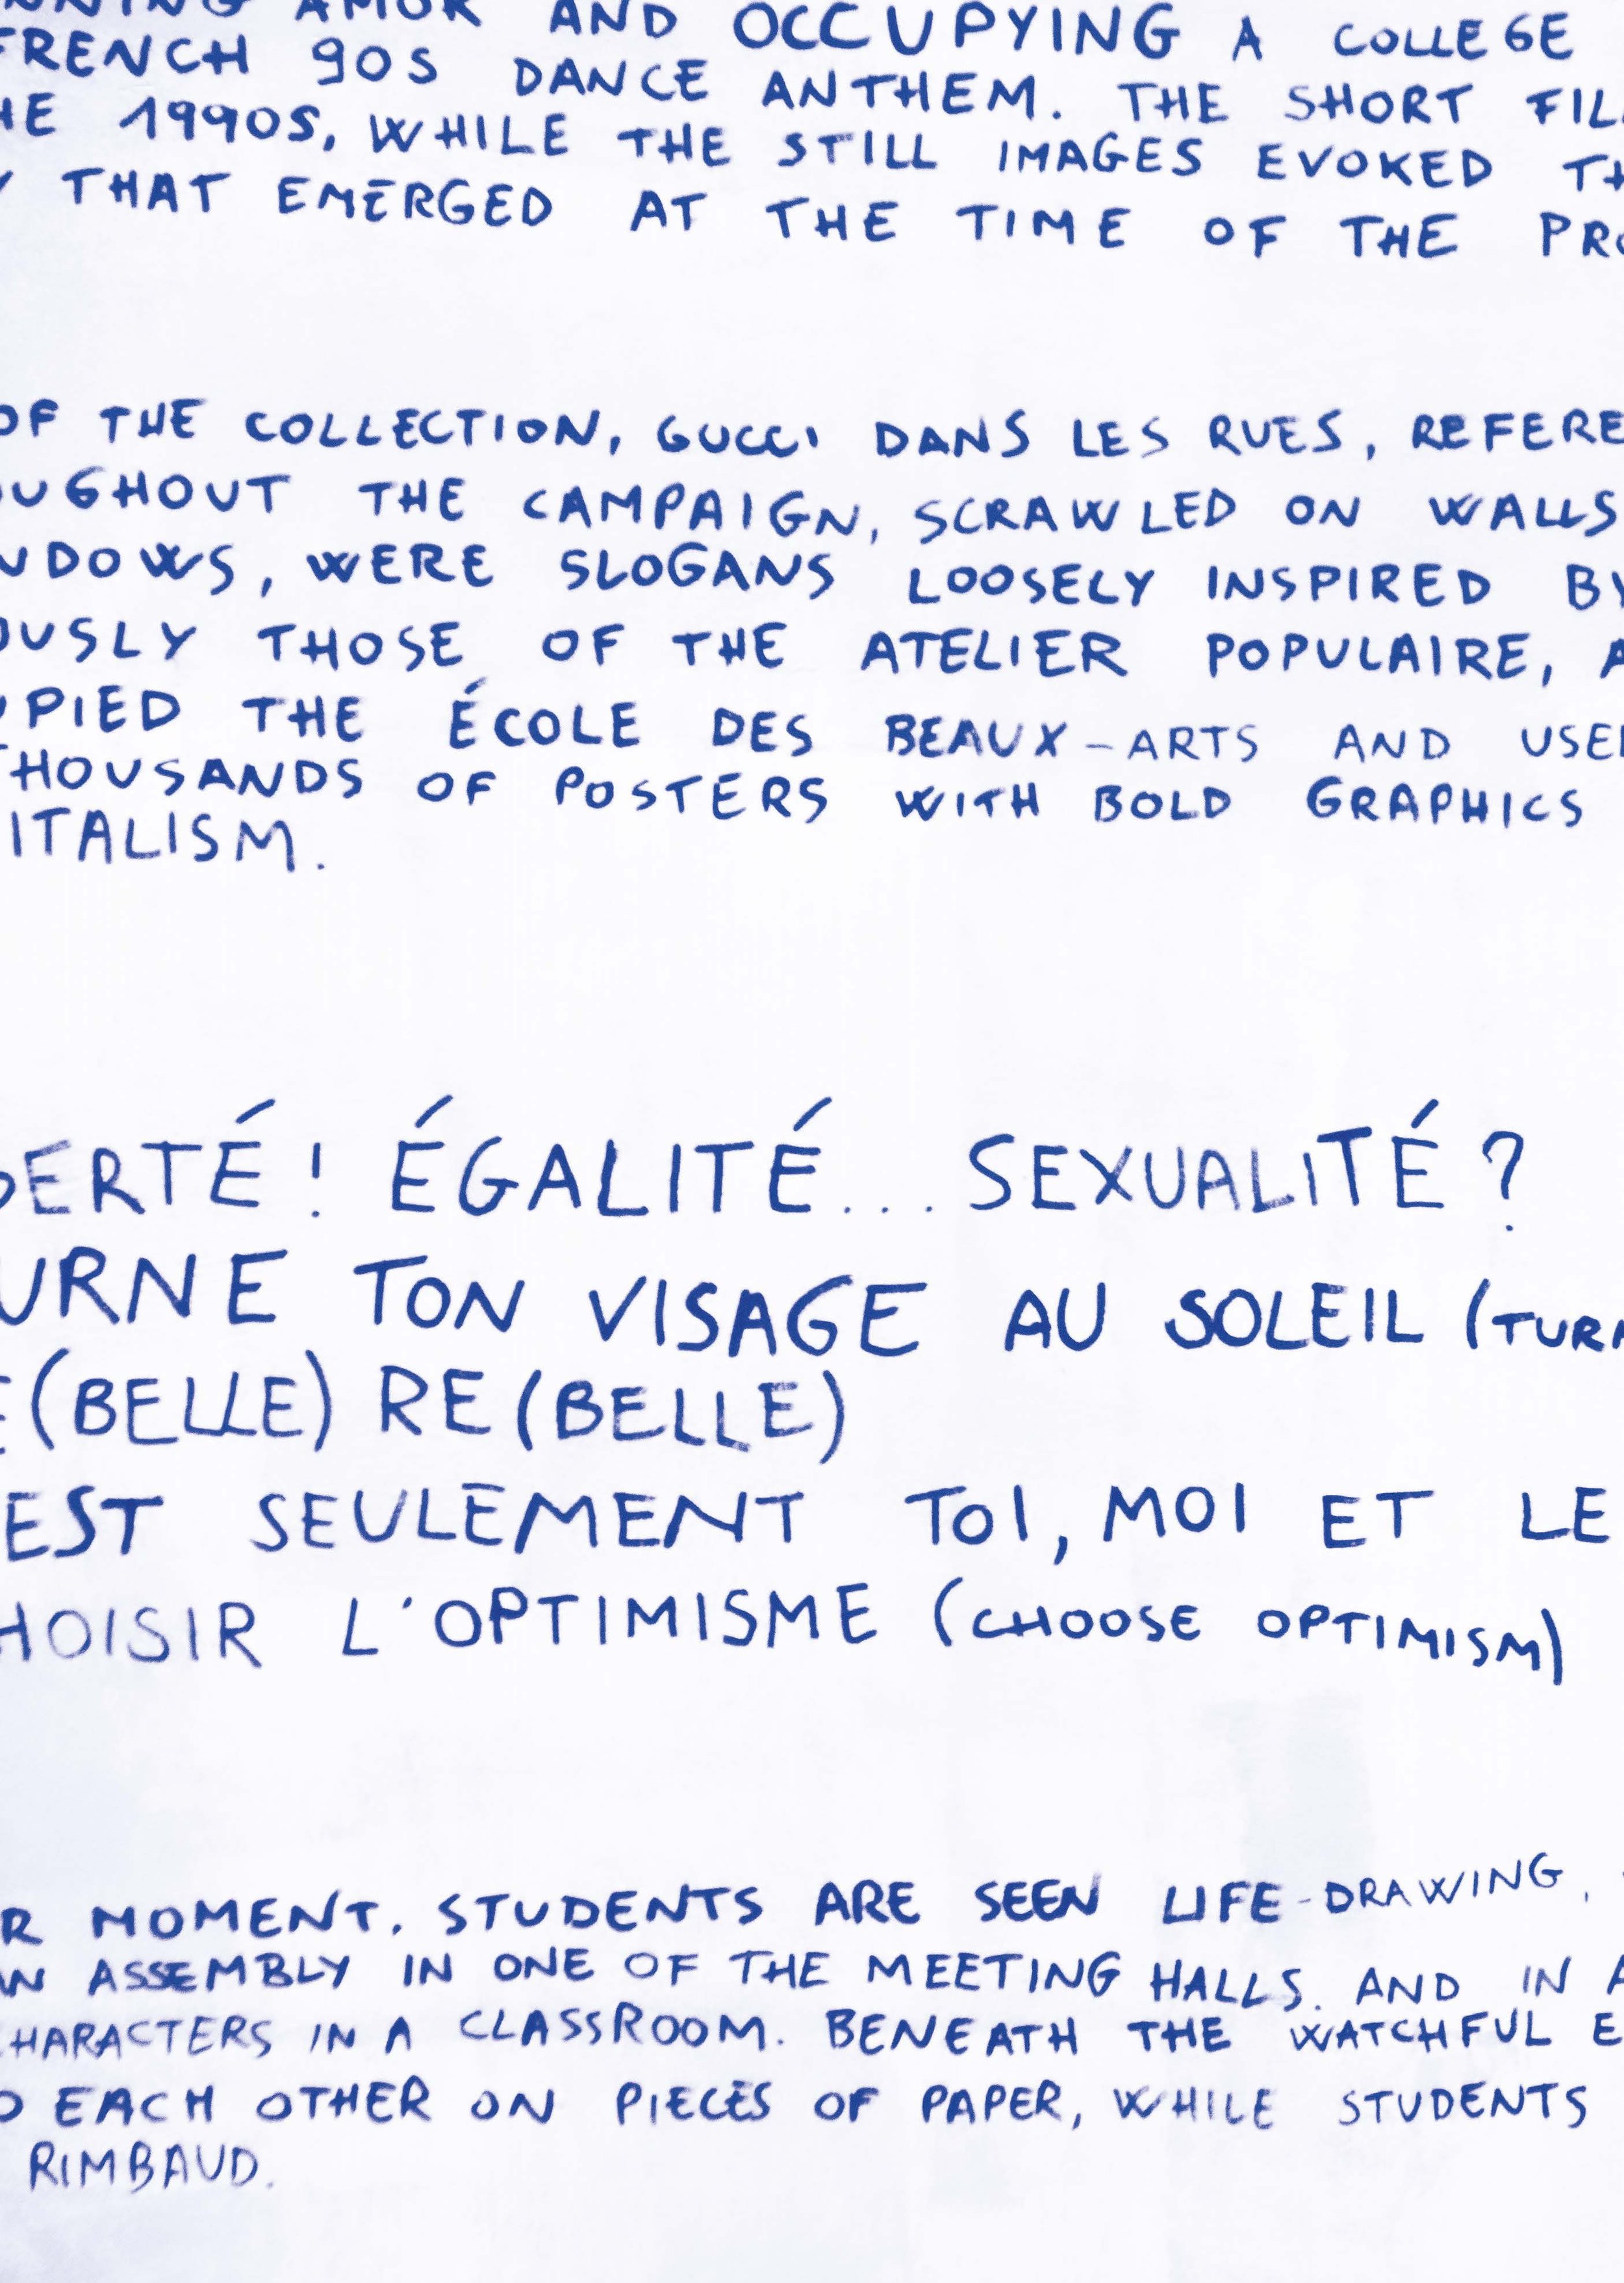 AMOR AND OCCUPYING A COLLEGE
FRENCH 90S DANCE ANTHEM. THE SHORT FIL
HE 1990S, WHILE THE STILL IMAGES EVOKED TH
Y THAT EMERGED AT THE TIME OF THE PRO
OF THE COLLECTION, GUCCI DANS LES RUES, REFERE
OUGHOUT THE CAMPAIGN, SCRAWLED ON WALLS
NDOWS, WERE SLOGANS LOOSELY INSPIRED BY
OUSLY THOSE OF THE ATELIER POPULAIRE, A
UPIED THE ÉCOLE DES BEAUX-ARTS AND USED
THOUSANDS OF POSTERS WITH BOLD GRAPHICS
ITALISM.
BERTÉ! ÉGALITÉ... SEXUALITÉ?
URNE TON VISAGE AU SOLEIL (TURN
E(BELLE) RE(BELLE)
EST SEULEMENT TOI, MOI ET LE
HOISIR L'OPTIMISME (CHOOSE OPTIMISM)
R MOMENT. STUDENTS ARE SEEN LIFE-DRAWING,
AN ASSEMBLY IN ONE OF THE MEETING HALLS. AND IN A
CHARACTERS IN A CLASSROOM. BENEATH THE WATCHFUL E
O EACH OTHER ON PIECES OF PAPER, WHILE STUDENTS
RIMBAUD.